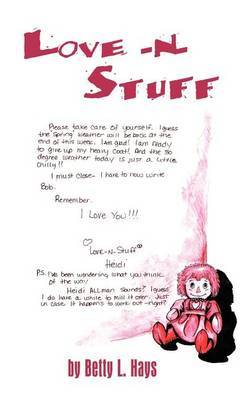 Love -n
Stuff
Please take care of yourself. I guess
the Spring weather will be back at the
end of this week. I am glad! I am ready
to give up my heavy coat! And the 50
degree weather today is just a little
chilly!!
I must close- I have to now write
Bob.
Remember.
I Love You!!!
Love-n-Stuff
Heidi
P.S. I've been wondering what you think
of the way
Heidi Allman Sounds? I guess
I do have a while to mill it over. Just
in case it happens to work out -right?
by Betty L. Hays